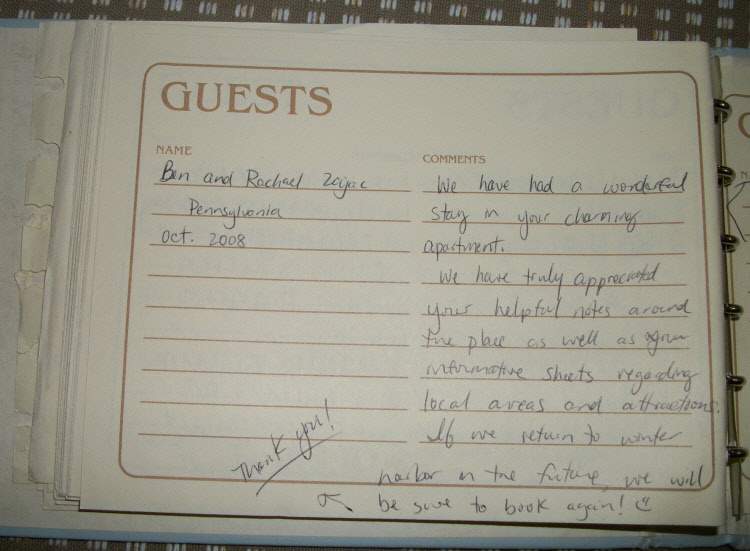 GUESTS
NAME
Ben and Rachael Zajac
Pennsylvania
Oct. 2008
COMMENTS
We have had a wonderful
stay in your charming
apartment.
We have truly appreciated
your helpful notes around
the place as well as your
informative sheets regarding
local areas and attractions.
If we return to winter
harbor in the future, we will
be sure to book again!
Thank you!